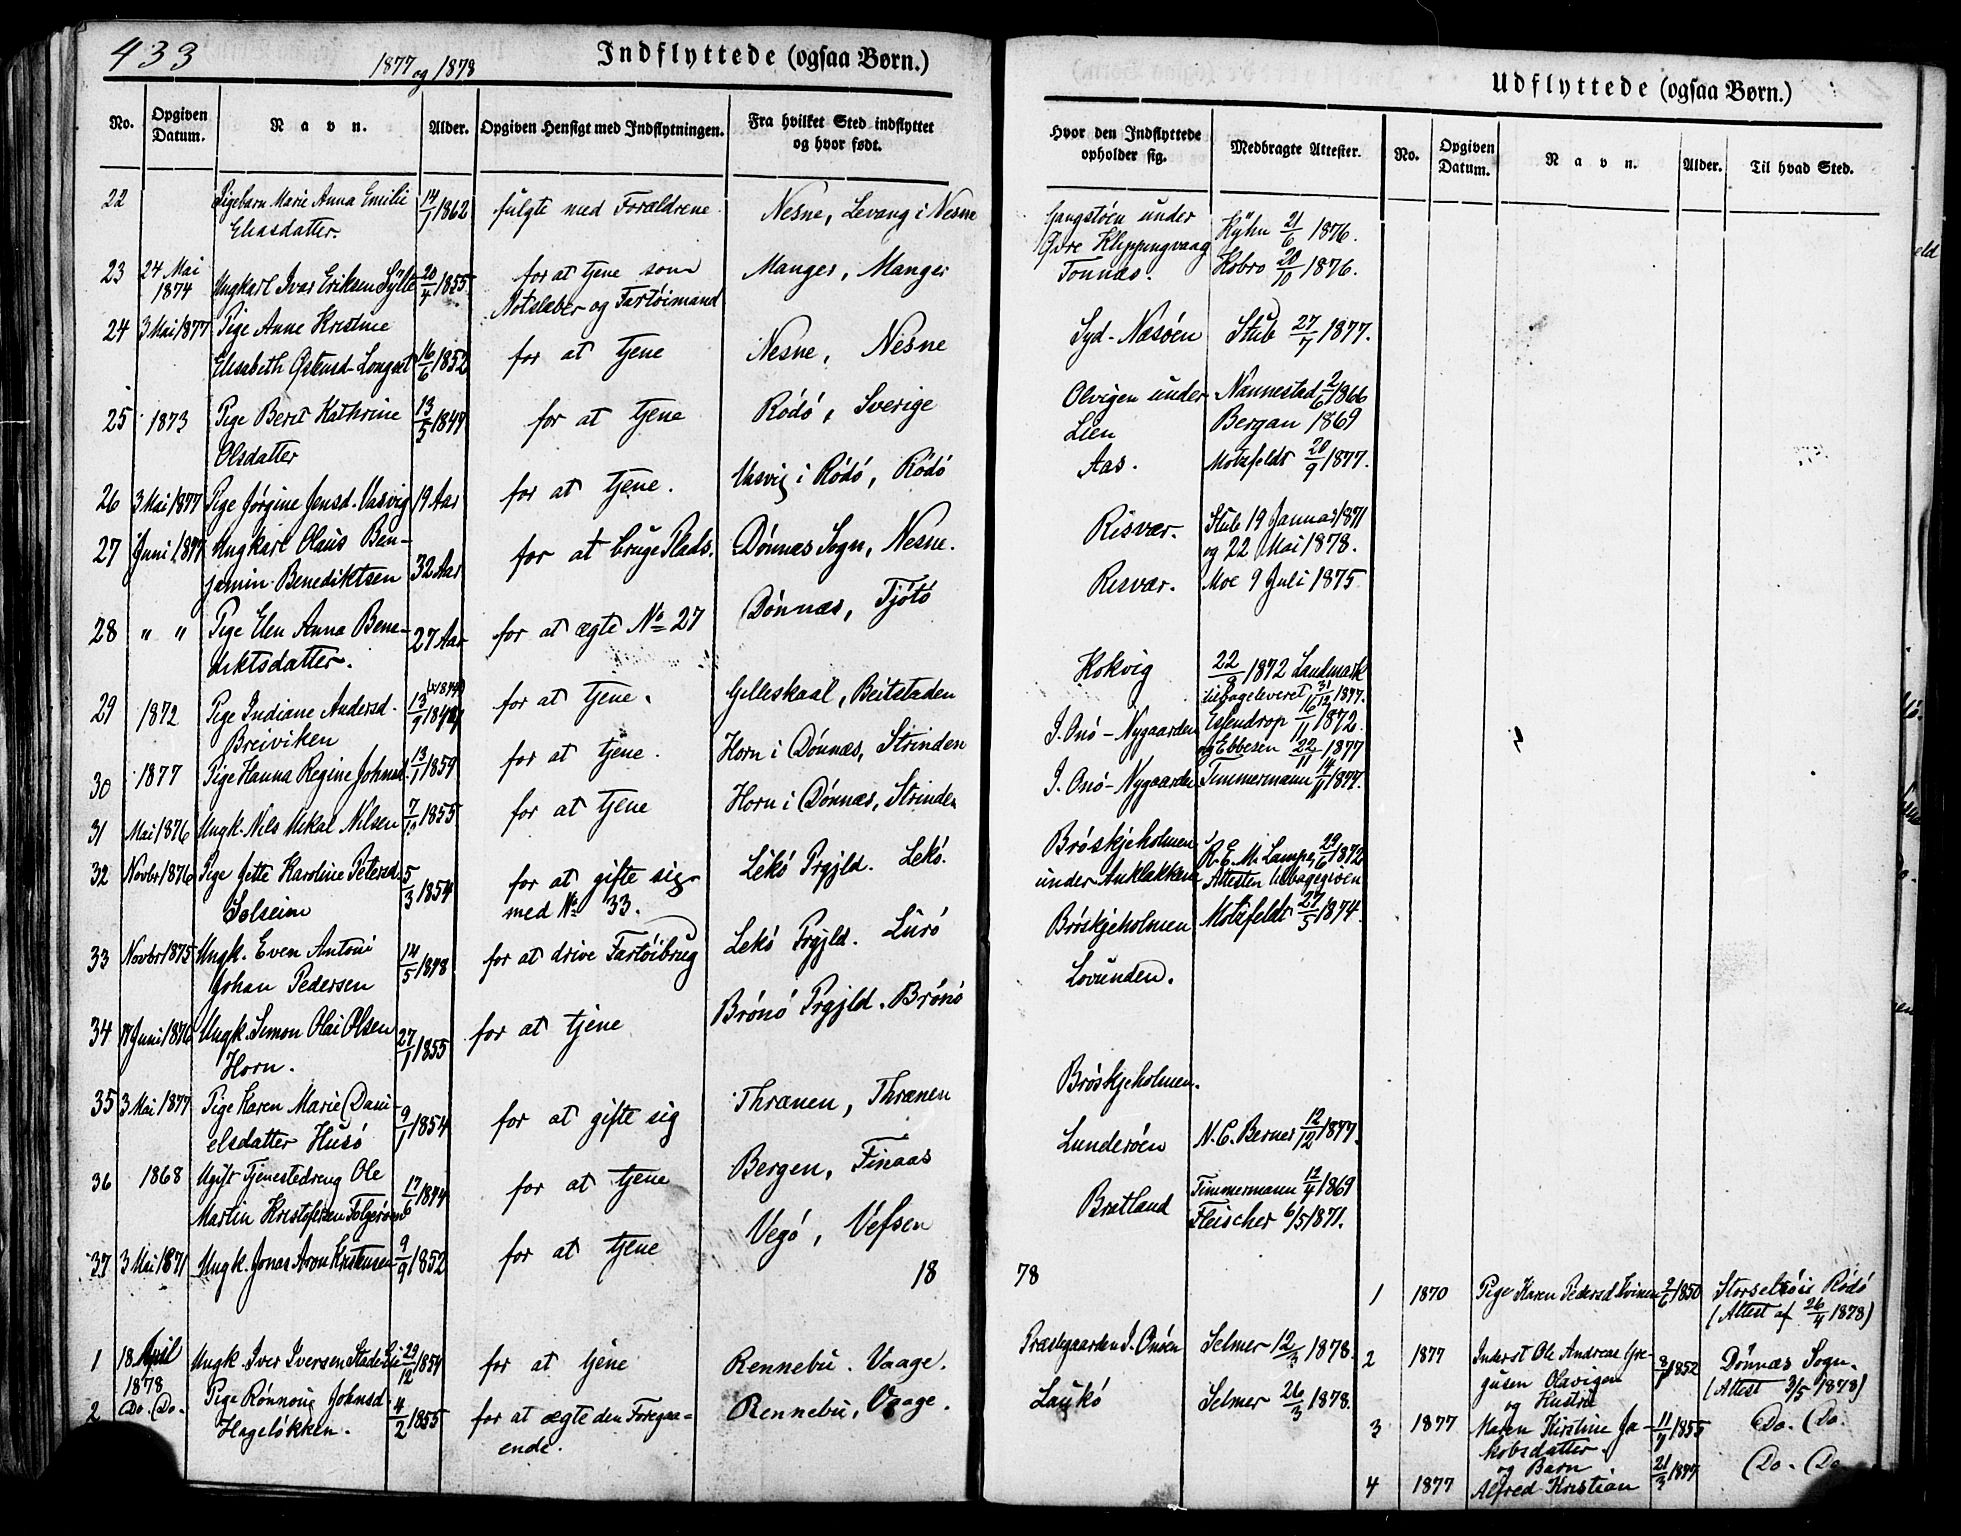 433
1877 og 1878
Indflyttede (ogsaa Børn.)
No. Opgiven Datum. Navn. Alder. Opgiven Hensigt med Indflytningen. Fra hvilket Sted indflyttet og hvor født.
22 Pigebarn Marie Anna Emilie 14/1 1862 fulgte med Forældrene Nesne, Levang i Nesne
Eliasdatter.
23 24 Mai 1874 Ungkarl Ivar Eriksen Sylte 20/4 1855 for at tjene som Manger, Manger
Notsleber og Fartøimand
24 3 Mai 1877 Pige Anne Kristine
Elisabeth Østensd. Longset 16/6 1852 for at tjene Nesne, Nesne
25 1873 Pige Berit Kathrine 13/5 1849 for at tjene Rödö, Sverige
Olsdatter
26 3 Mai 1877 Pige Jörgine Jensd. Vasvig 19 Aar for at tjene. Vasvig i Rödö, Rödö
27 Juni 1877 Ungkarl Olaus Ben-
jamin Benediktsen 32 Aar for at bruge Plads. Dönnæs Sogn, Nesne.
28 " " Pige Elen Anna Bene- 27 Aar for at ægte No 27 Dönnæs, Tjötö
diktsdatter.
29 1872 Pige Indiane Andersd. 13/9 for at tjene. Gilleskaal, Beitstaden
Breiviken
30 1877 Pige Hanna Regine Johnsd. 13/1 1859 for at tjene. Horn i Dönnæs, Strinden
31 Mai 1876 Ungk. Nils Mikal Nilsen 1855 for at tjene Horn i Dönnæs, Strinden
32 Novbr 1876 Pige Jette Karoline Petersd. 5/3 1854 for at gifte sig Lekö Prgjld. Lekö.
Solseim med No 33.
33 Novbr 1875 Ungk. Even Antoni 14/5 1848 for at drive Fartöibrug Lekö Prgjld. Lurö
Johan Pedersen
34 Juni 1876 Ungk. Simon Olai Olsen 27/1 1855 for at tjene Brönö Prgjld. Brönö
Horn.
35 3 Mai 1877 Pige Karen Marie Dani- 9/1 1854 for at gifte sig Thrænen, Thrænen
elsdatter Husö
36 1868 Ugift Tjenestedreng Ole 17/6 for at tjene Bergen, Finaas
Martin Kristofersen
37 3 Mai 1871 Ungk. Jonas Aron Kristensen 9/9 1852 for at tjene Vegö, Vefsen
18
1 18 April 1878 Ungk. Iver Iversen 29/12 1854 for at tjene Rennebu. Vaage.
2 Do. Do. Pige Rönnoug Johnsd. 4/2 1855 for at ægte den Foregaa- Rennebu, Vaage.
Hagelökken. ende.
Udflyttede (ogsaa Børn.)
Hvor den Indflyttede opholder sig. Medbragte Attester. No. Opgiven Datum. Navn. Alder. Til hvad Sted.
Gangstöen under
Øvre Kleppingvaag Kyhn 21/6 1876.
Tonnæs. Kobro 20/10 1876.
Syd-Næsöen Stub 27/7 1877.
Olvigen under Nannestad 2/6 1866
Lien Bergan 1869
Aas. Motzfeldt 20/9 1877.
Risvær. Stub 19 Januar 1871
og 22 Mai 1878.
Risvær. Moe 9 Juli 1875.
Kokvig 22/8 1872 Landmark
tilbageleveret 31/12 1877.
I. Onö-Nygaarden Eilendrop 16/11 1872.
og Ebbesen 22/11 1877
I. Onö-Nygaarden Timmermann 14/11 1877.
Bröskjeholmen R. E. M. Lampe 29/6 1872
under Anklakken Attesten tilbagegiven
Bröskjeholmen Motzfeldt 27/5 1874.
Lovunden.
Bröskjeholmen.
Lunderöen N. C. Berner 12/12 1877.
Bratland Timmermann 12/4 1869
Fleischer 6/5 1871.
78
1 1870 Pige Karen Pedersd. 2/6 1850 Storselsöi i Rödö
(Attest af 26/4 1878)
Præstegaarden I. Onöen Selmer 12/3 1878.
2 1877 Inderst Ole Andreas Gre- 1852 Dönnæs Sogn.
gusen Olavigen (Attest 3/5 1878)
og Hustru
Laukö Selmer 26/3 1878.
3 1877 Maren Kirstine Ja- 11/7 1855 Do. Do.
kobsdatter.
og Barn
4 1877 Alfred Kristian 21/3 1877 Do. Do.